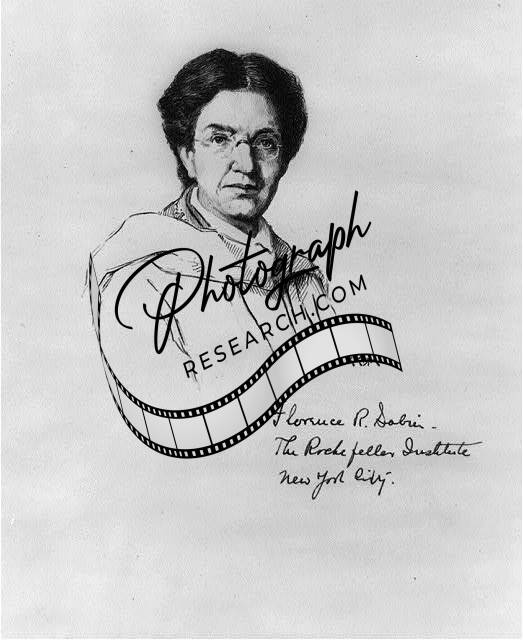 Photograph
RESEARCH.COM
Florence R. Sabin.
The Rockefeller Institute
New York City.